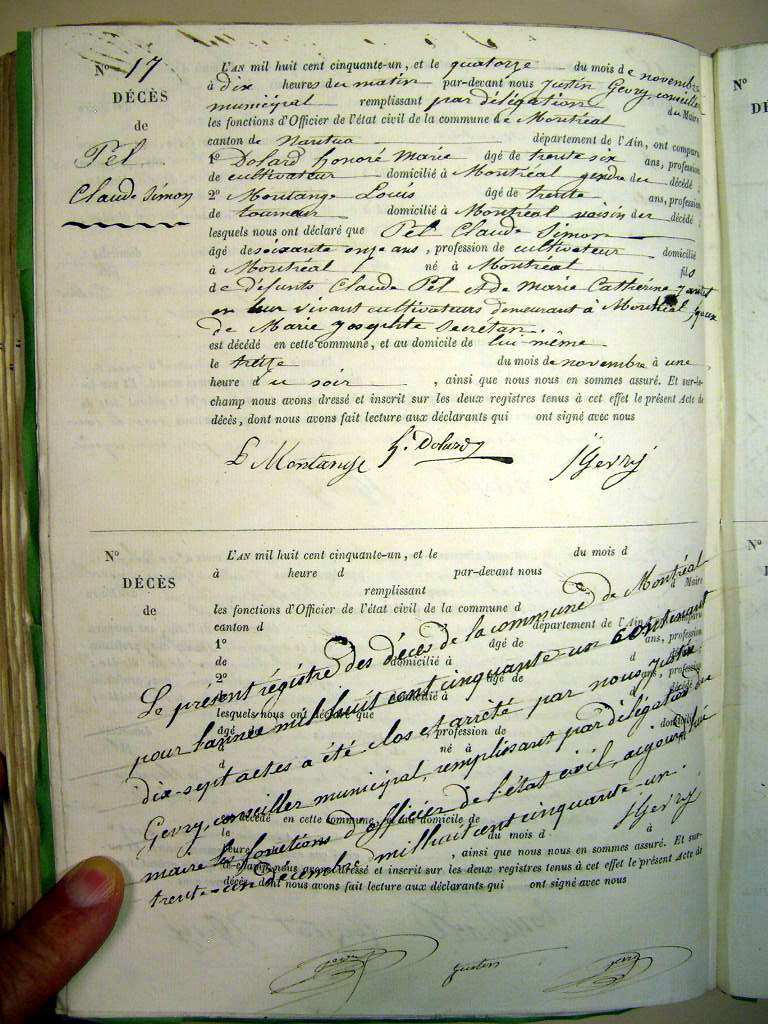 N° 17
DÉCÈS
de
Pel
Claude Simon
L'AN mil huit cent cinquante-un, et le quatorze du mois de novembre
à dix heures du matin par-devant nous Justin Gevry, conseiller
municipal remplissant par délégation du Maire
les fonctions d'Officier de l'état civil de la commune de Montréal
canton de Nantua département de l'Ain, ont comparu
1° Dolard honoré Marie âgé de trente six ans, profession
de cultivateur domicilié à Montréal gendre du décédé
2° Montange Louis âgé de trente ans, profession
de tourneur domicilié à Montréal voisin du décédé
lesquels nous ont déclaré que Pel Claude Simon
âgé de soixante onze ans, profession de cultivateur domicilié
à Montréal né à Montréal fils
de défunts Claude Pel et de Marie Catherine
en leur vivant cultivateurs demeurant à Montréal, époux
de Marie Josephte Secrétan.
est décédé en cette commune, et au domicile de lui-même
le treize du mois de novembre à une
heure du soir, ainsi que nous nous en sommes assuré. Et sur-le-
champ nous avons dressé et inscrit sur les deux registres tenus à cet effet le présent Acte de
décès, dont nous avons fait lecture aux déclarants qui ont signé avec nous
L Montange h. Dolard J Gevry
N°
DÉCÈS
de
L'AN mil huit cent cinquante-un, et le du mois d
à heure d par-devant nous
remplissant d Maire
les fonctions d'Officier de l'état civil de la commune d
canton d département de l'Ain, ont comparu
1° âgé de ans, profession
de domicilié à d décédé
2° âgé de ans, profession
de domicilié à d décédé
lesquels nous ont déclaré que
âgé profession de domicilié
à né à
d
est décédé en cette commune, et au domicile de
le du mois d à
heure d , ainsi que nous nous en sommes assuré. Et sur-le-
champ nous avons dressé et inscrit sur les deux registres tenus à cet effet le présent Acte de
décès, dont nous avons fait lecture aux déclarants qui ont signé avec nous
Le présent régistre des décès de la commune de Montréal
pour l'année mil huit cent cinquante-un contenant
dix-sept actes a été clos et arrêté par nous Justin
Gevry, conseiller municipal, remplissant par délégation du
maire les fonctions d'officier de l'état civil, aujourd'hui
trente-un décembre mil huit cent cinquante-un.
J Gevry
Gevry Justin Gevry
N°
DÉ
N°
DÉ